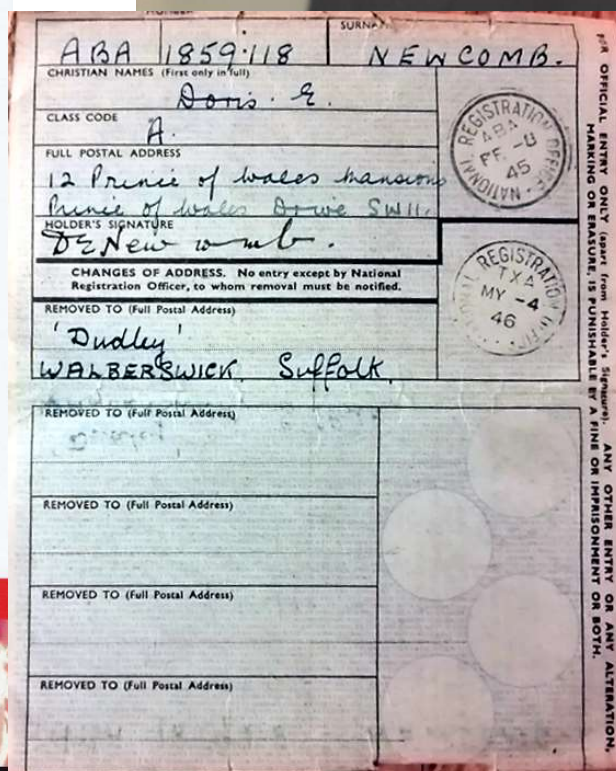 NUMBER SURNAME
ABA 1859·118 NEWCOMB.
CHRISTIAN NAMES (First only in full)
Doris. E.
CLASS CODE
A.
FULL POSTAL ADDRESS
12 Prince of Wales Mansions
Prince of Wales Drive SW11.
HOLDER'S SIGNATURE
D E Newcomb.
CHANGES OF ADDRESS. No entry except by National
Registration Officer, to whom removal must be notified.
REMOVED TO (Full Postal Address)
'Dudley'
WALBERSWICK. Suffolk.
REMOVED TO (Full Postal Address)
REMOVED TO (Full Postal Address)
REMOVED TO (Full Postal Address)
REMOVED TO (Full Postal Address)
NATIONAL REGISTRATION OFFICE
ABA
FE -8
45
NATIONAL REGISTRATION OFFICE
TXA
MY -4
46
FOR OFFICIAL ENTRY ONLY (apart from Holder's Signature). ANY OTHER ENTRY OR ANY ALTERATION,
MARKING OR ERASURE, IS PUNISHABLE BY A FINE OR IMPRISONMENT OR BOTH.